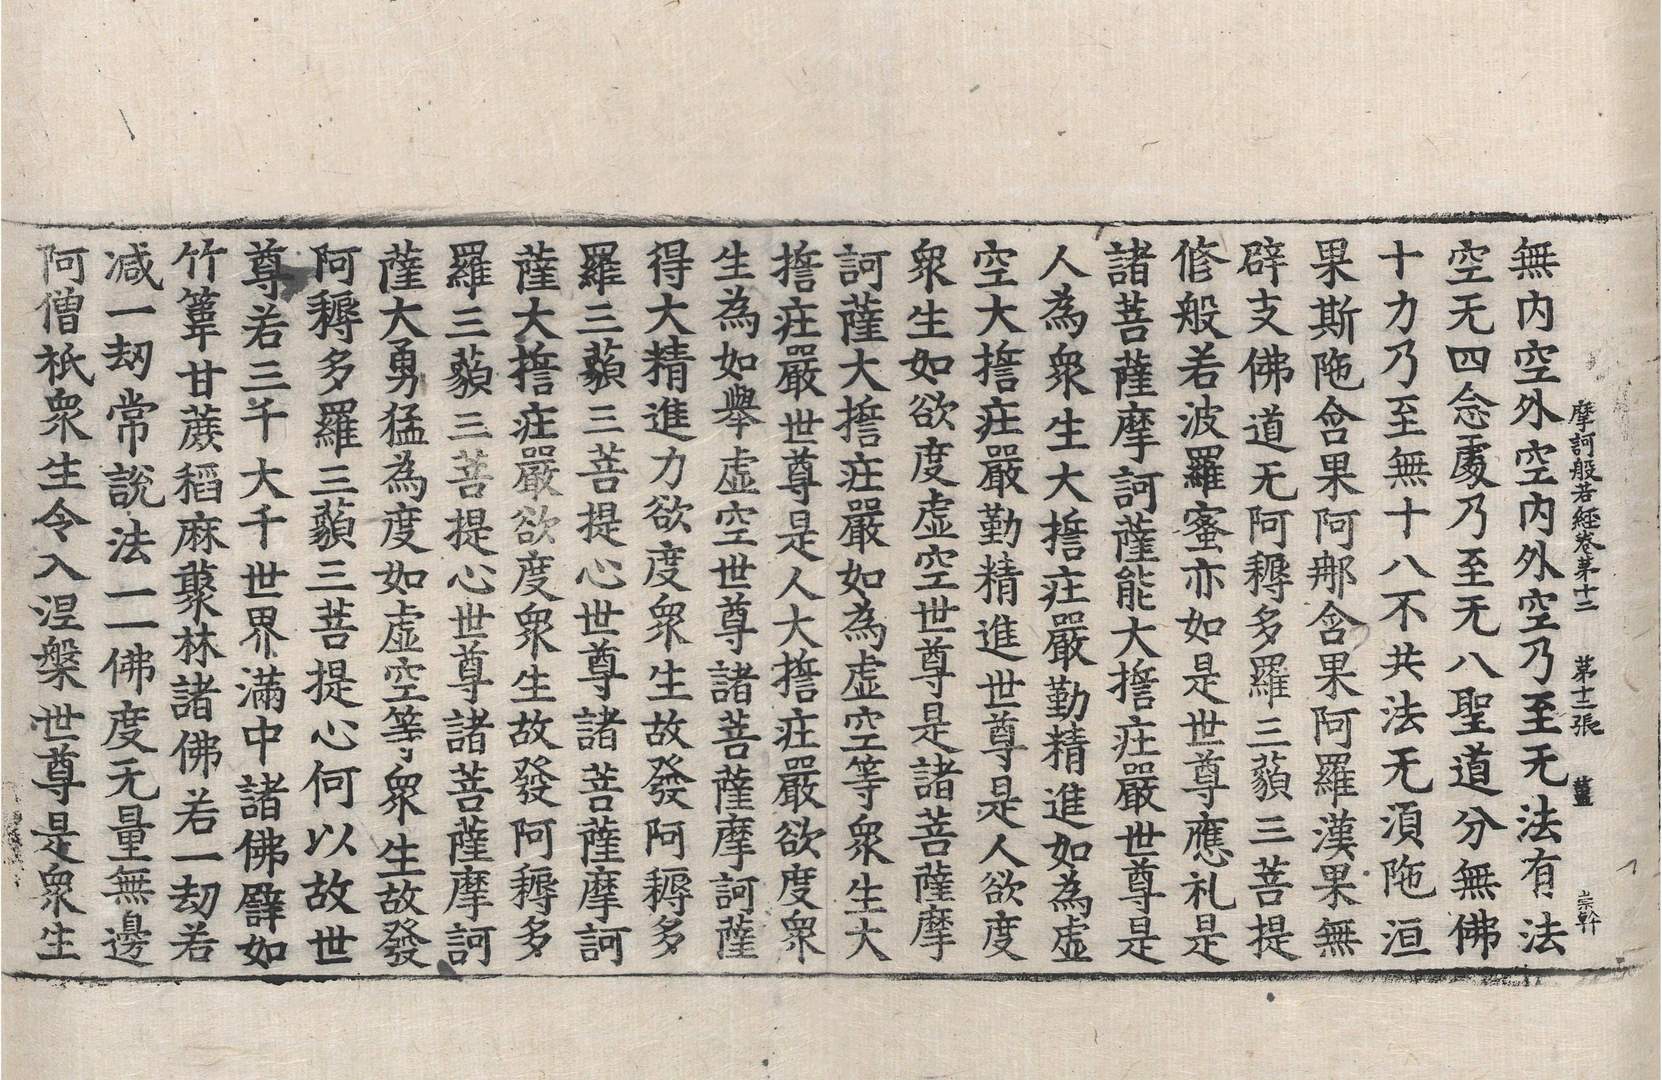 摩訶般若經卷第十二　第十二張　薑　崇幹
無内空外空内外空乃至无法有法
空无四念處乃至无八聖道分無佛
十力乃至無十八不共法无湏陁洹
果斯陁含果阿那含果阿羅漢果無
辟支佛道无阿耨多羅三藐三菩提
修般若波羅蜜亦如是世尊應礼是
諸菩薩摩訶薩能大擔疘嚴世尊是
人為衆生大擔疘嚴勤精進如為虛
空大擔疘嚴勤精進世尊是人欲度
衆生如欲度虛空世尊是諸菩薩摩
訶薩大擔疘嚴如為虛空等衆生大
擔疘嚴世尊是人大擔疘嚴欲度衆
生為如舉虛空世尊諸菩薩摩訶薩
得大精進力欲度衆生故發阿耨多
羅三藐三菩提心世尊諸菩薩摩訶
薩大擔疘嚴欲度衆生故發阿耨多
羅三藐三菩提心世尊諸菩薩摩訶
薩大勇猛為度如虛空等衆生故發
阿耨多羅三藐三菩提心何以故世
尊若三千大千世界滿中諸佛譬如
竹葦甘蔗稻麻藂林諸佛若一劫若
减一劫常說法一一佛度无量無邊
阿僧祇衆生令入涅槃世尊是衆生